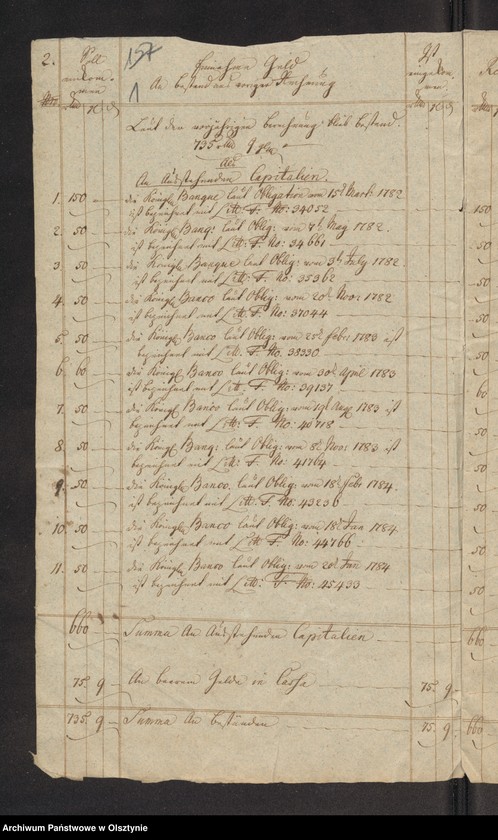 2. Soll 157 Einnahme Geld Ist
einkom- 1 An bestand aus voriger Rechnung eingekom
men men
Laut der vorjährigen berechnung blieb bestand.
735 rthl 9
Als
An Ausstehenden Capitalien.
1. 150 die Königl Banque laut Obligation vom 15t Mart: 1782 150
ist bezeichnet mit Litt: F. No: 34052
2. 50 die Königl Banq: laut Oblig: vom May 1782. 50
ist bezeichnet mit Litt: F. No: 34661
3. 50 die Königl Banque laut Oblig: vom 3t July 1782. 50
ist bezeichnet mit Litt: F. No: 35362
4. 50 die Königl Banco laut Oblig: vom 20t Nov: 1782 50
ist bezeichnet mit Litt: F. No: 37044
5. 50 die Königl Banco laut Oblig: vom 25t Febr: 1783 ist 50
bezeichnet mit Litt: F. No. 38330
6. 60 die Königl Banco laut Oblig: vom 30t April 1783 60
ist bezeichnet mit Litt: F. No: 39137
7. 50 die Königl Banco laut Oblig: vom 19t Aug: 1783 ist 50
bezeichnet mit Litt: F. No: 40718
8. 50 die Königl Banq: laut Oblig: vom 8t Nov: 1783 ist 50
bezeichnet mit Litt: F. No: 41764
9. 50 die Königl Banco. laut Oblig: vom 18t Febr 1784. 50
ist bezeichnet mit Litt: F. No: 43236
10. 50 die Königl Banco laut Oblig: vom 18t Jun 1784. 50
ist bezeichnet mit Litt: F. No: 44766
11. 50 die Königl Banco laut Oblig: vom 20t 1784 50
ist bezeichnet mit Litt: F. No: 45433
660 Summa An Ausstehenden Capitalien 660
75. 9 An baarem Gelde in Cassa 75. 9
735. 9 Summa An beständen 75. 9. 660
Archiwum Państwowe w Olsztynie